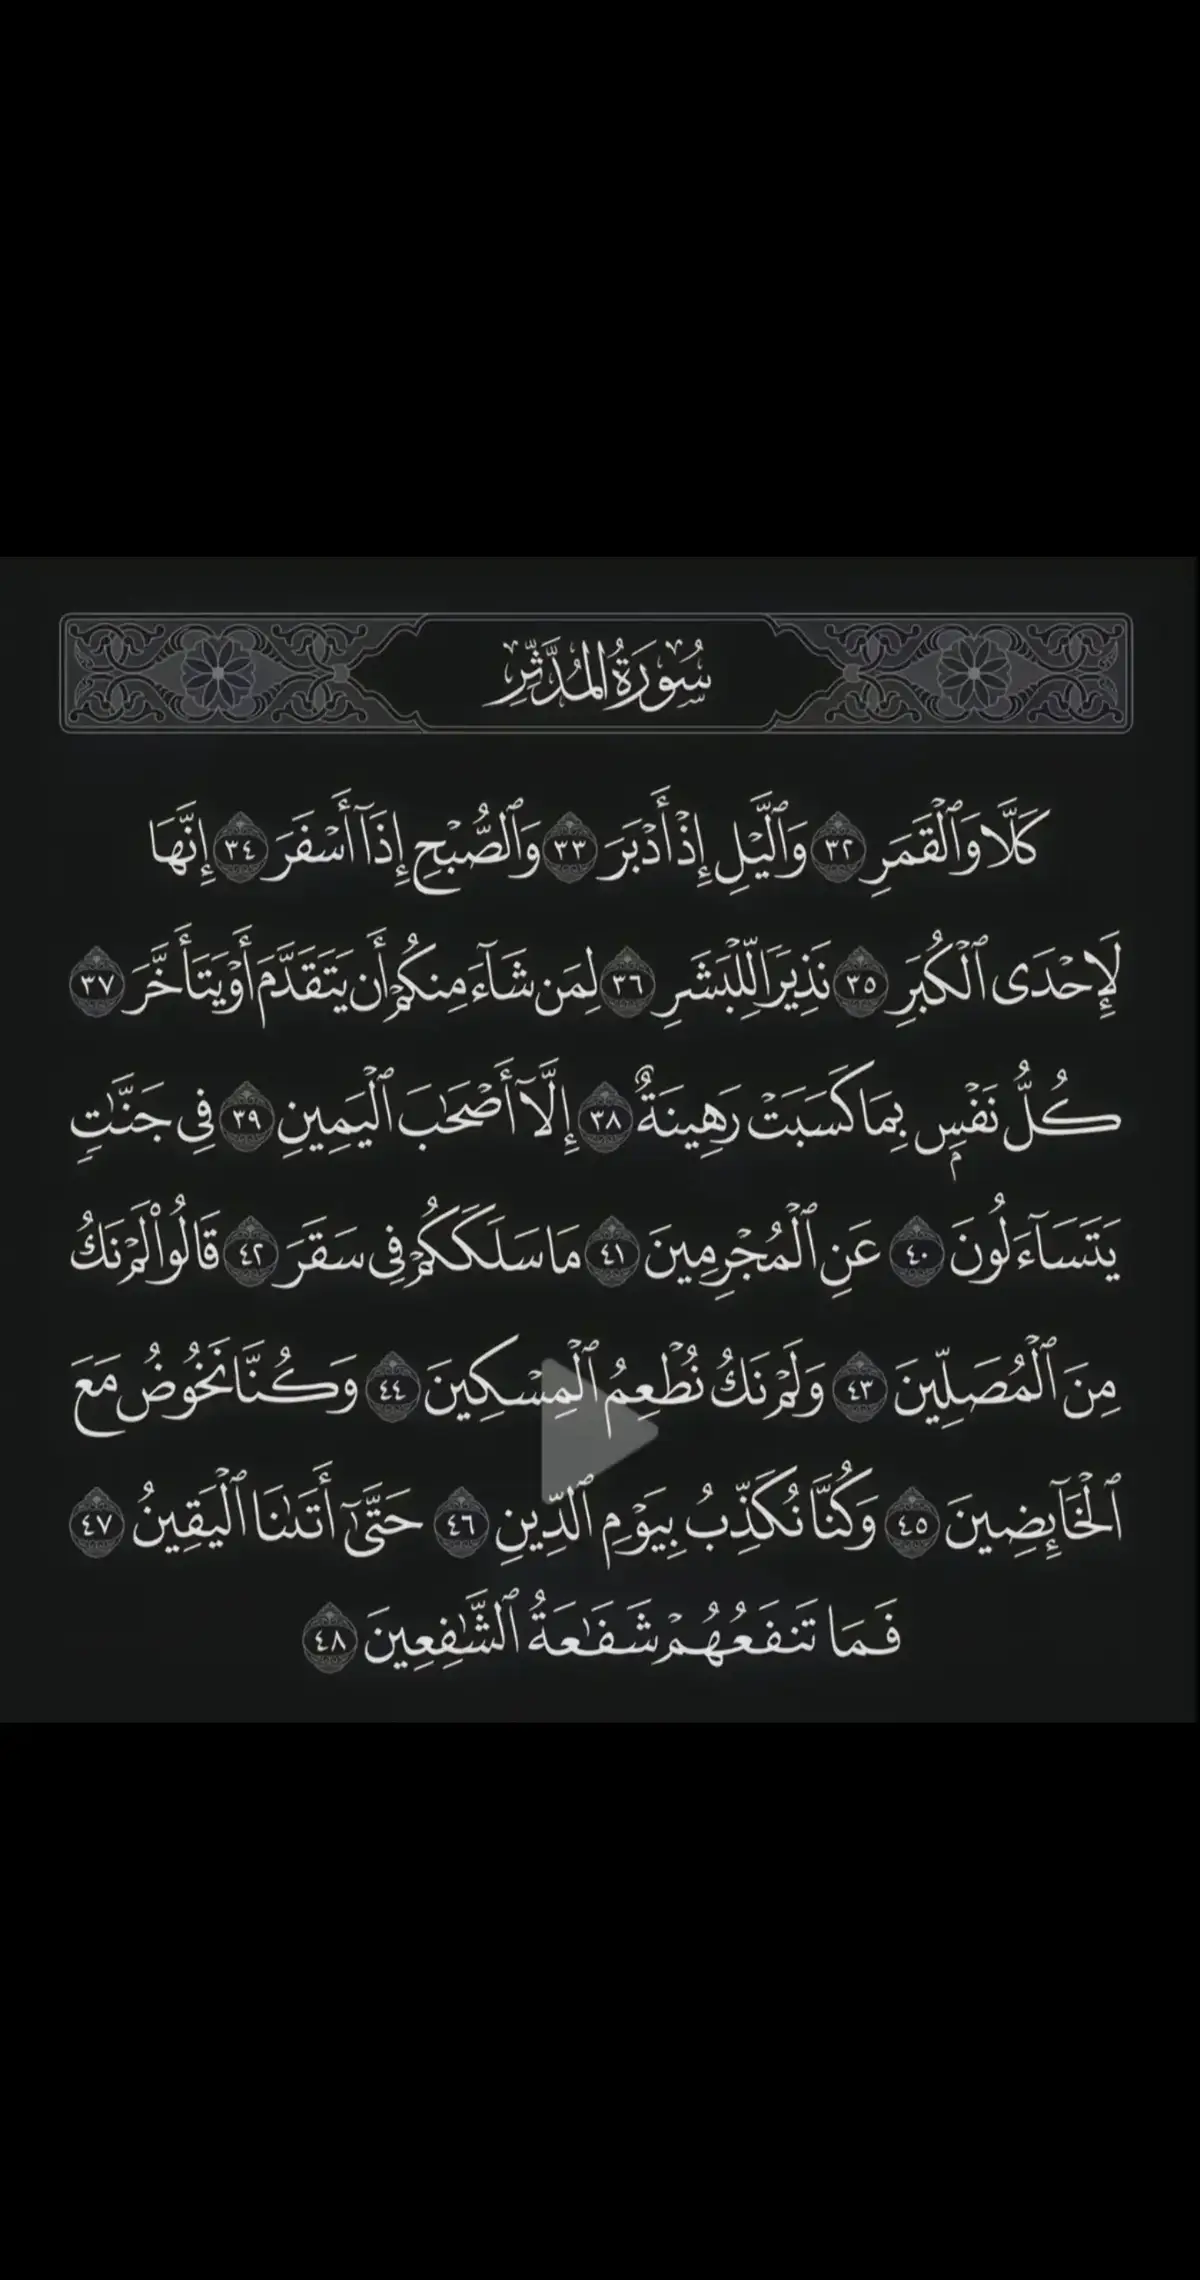 سُورَةُ المُدَّثِّرِ
كَلَّا وَٱلْقَمَرِ ٣٢ وَٱلَّيْلِ إِذْ أَدْبَرَ ٣٣ وَٱلصُّبْحِ إِذَآ أَسْفَرَ ٣٤ إِنَّهَا
لَإِحْدَى ٱلْكُبَرِ ٣٥ نَذِيرًا لِّلْبَشَرِ ٣٦ لِمَن شَآءَ مِنكُمْ أَن يَتَقَدَّمَ أَوْ يَتَأَخَّرَ ٣٧
كُلُّ نَفْسٍۭ بِمَا كَسَبَتْ رَهِينَةٌ ٣٨ إِلَّآ أَصْحَٰبَ ٱلْيَمِينِ ٣٩ فِى جَنَّٰتٍ
يَتَسَآءَلُونَ ٤٠ عَنِ ٱلْمُجْرِمِينَ ٤١ مَا سَلَكَكُمْ فِى سَقَرَ ٤٢ قَالُوا۟ لَمْ نَكُ
مِنَ ٱلْمُصَلِّينَ ٤٣ وَلَمْ نَكُ نُطْعِمُ ٱلْمِسْكِينَ ٤٤ وَكُنَّا نَخُوضُ مَعَ
ٱلْخَآئِضِينَ ٤٥ وَكُنَّا نُكَذِّبُ بِيَوْمِ ٱلدِّينِ ٤٦ حَتَّىٰٓ أَتَىٰنَا ٱلْيَقِينُ ٤٧
فَمَا تَنفَعُهُمْ شَفَٰعَةُ ٱلشَّٰفِعِينَ ٤٨